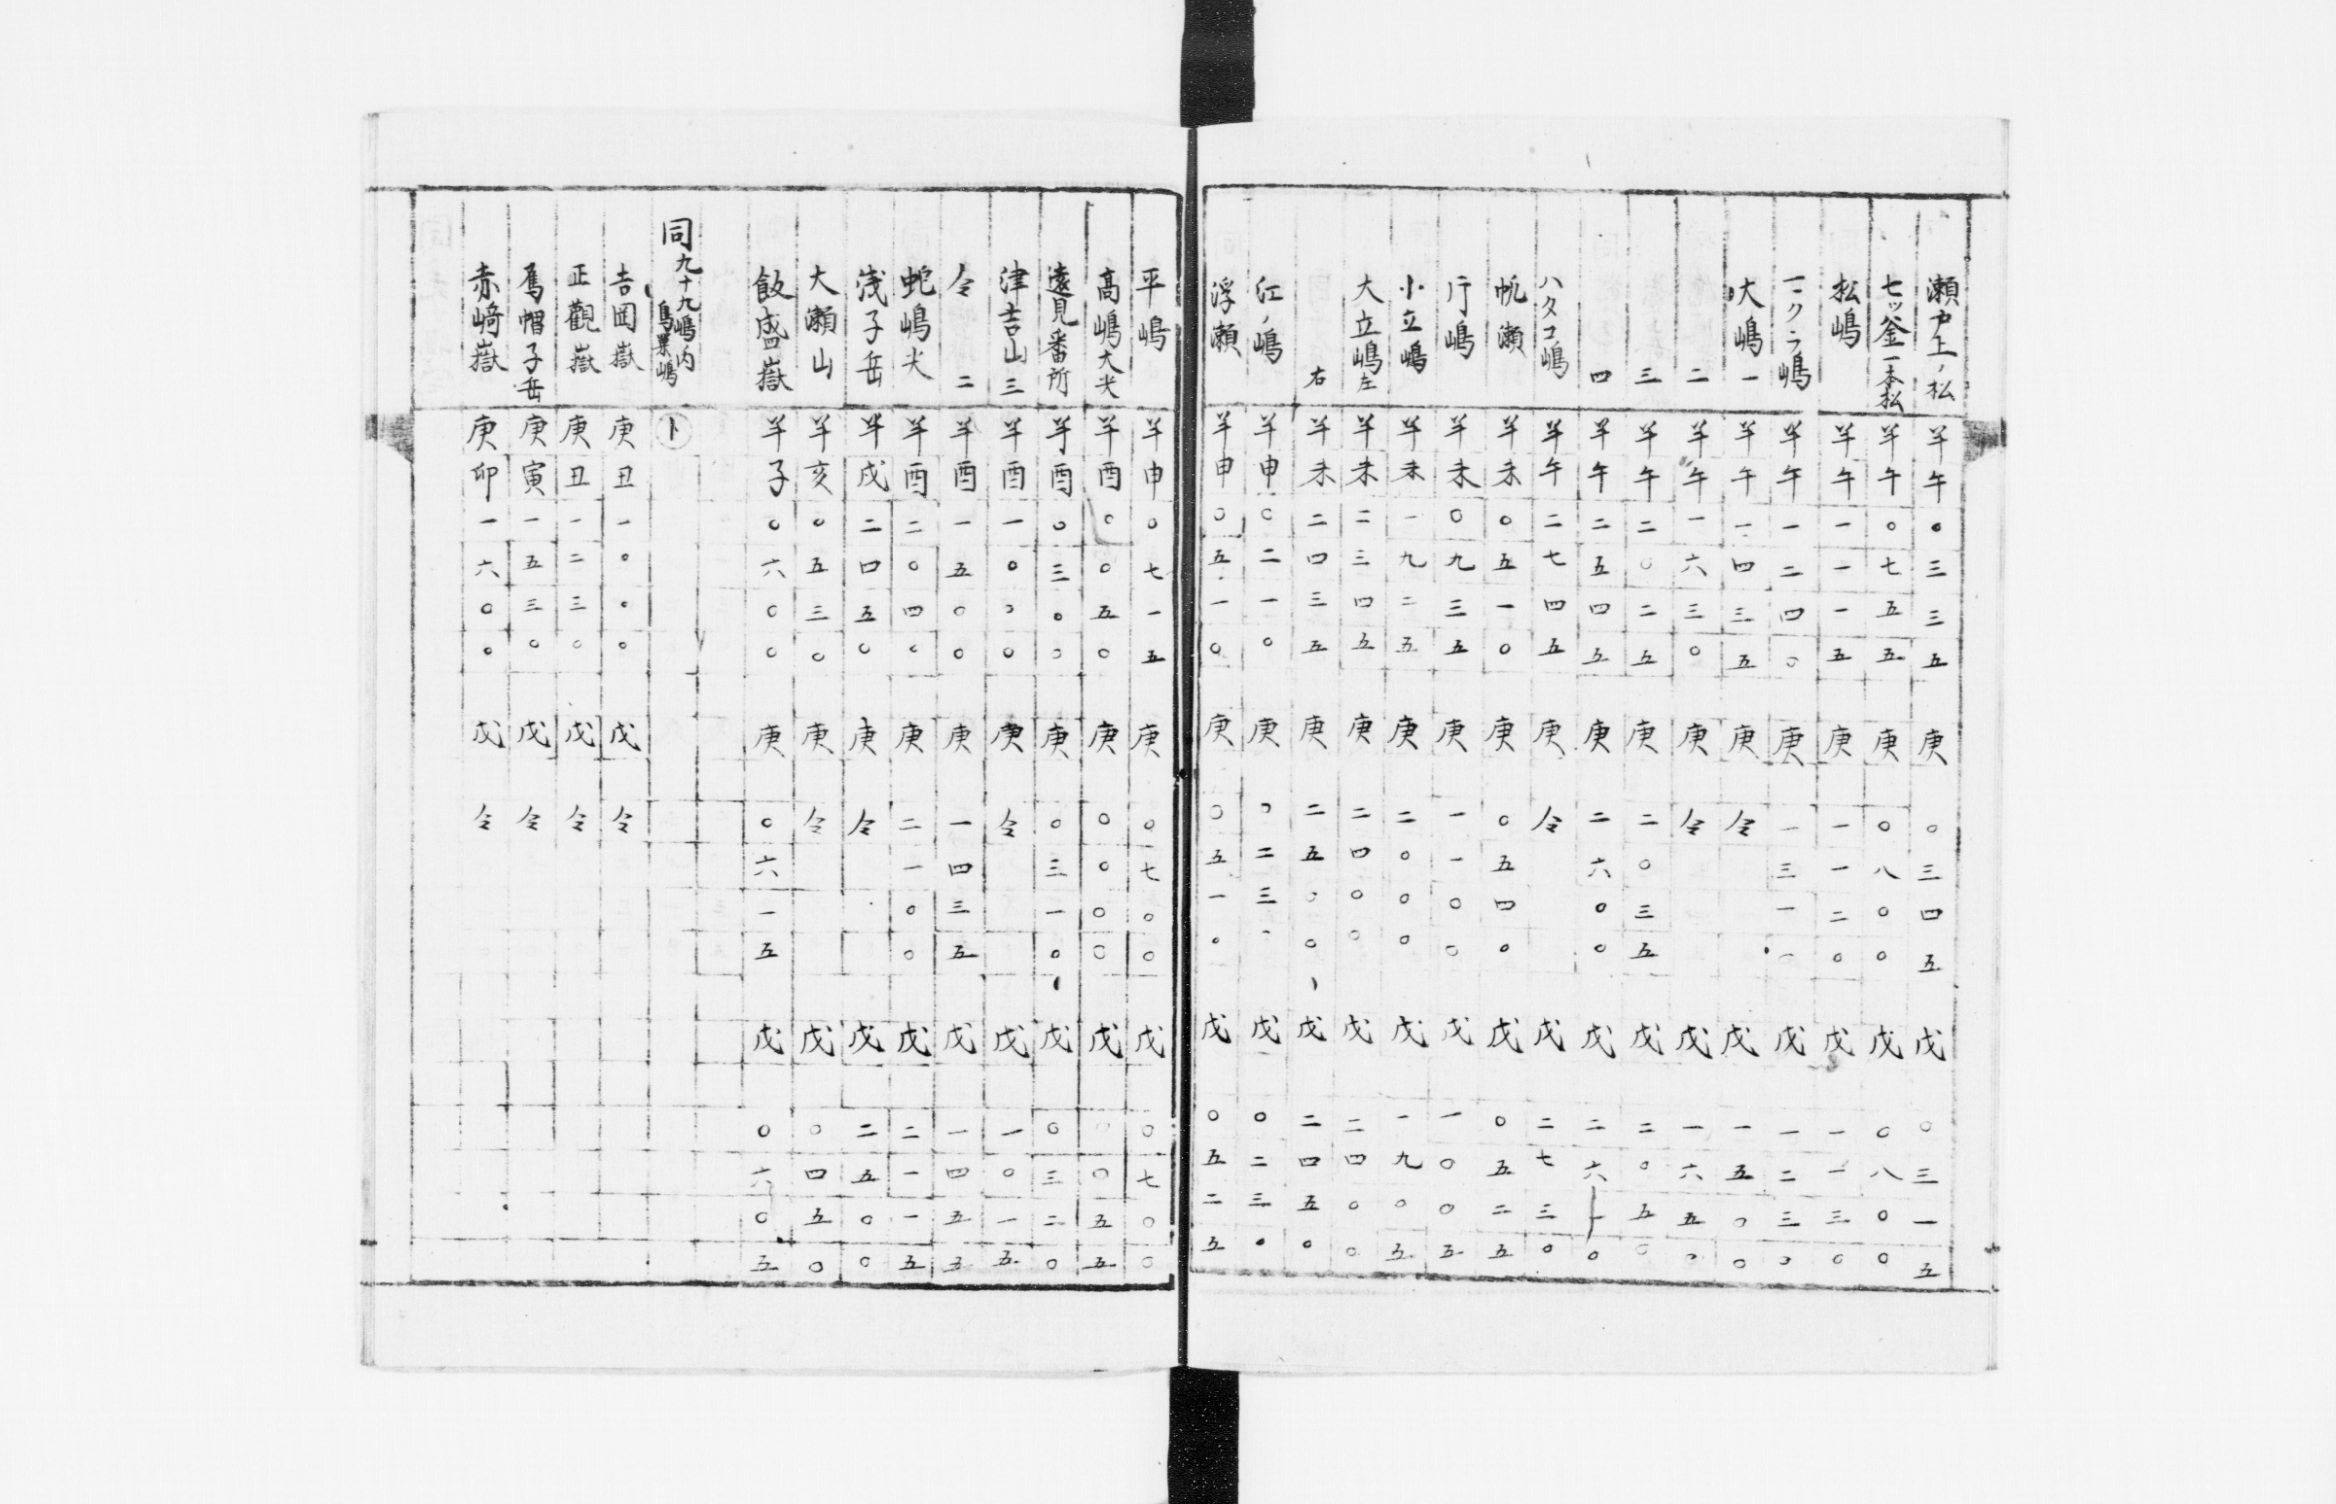 瀬戸上ノ松 羊午〇三三五 庚〇三四五 戊〇三一五
七ッ釜一本松 羊午〇七五五 庚〇八〇〇 戊〇八〇〇
松嶋 羊午一一一五 庚一一二〇 戊一一三〇
クラ嶋 羊午一二四〇 庚一三一〇 戊一二三〇
大嶋一 羊午一四三五 庚仝 戊一五〇〇
二 羊午一六三〇 庚仝 戊一六五〇
三 羊午二〇二五 庚二〇三五 戊二〇五〇
四 羊午二五四五 庚二六〇〇 戊二六一〇
ハタコ嶋 羊午二七四五 庚仝 戊二七三〇
帆瀬 羊未〇五一〇 庚〇五四〇 戊〇五二五
片嶋 羊未〇九三五 庚一一〇〇 戊一〇〇五
小立嶋 羊未一九二五 庚二〇〇〇 戊一九〇五
大立嶋左 羊未二三四五 庚二四〇〇 戊二四〇〇
右 羊未二四三五 庚二五〇〇 戊二四五〇
江ノ嶋 羊申〇二一〇 庚〇二三〇 戊〇二三〇
浮瀬 羊申〇五一〇 庚〇五一〇 戊〇五二五
平嶋 羊申〇七一五 庚〇七〇〇 戊〇七〇〇
髙嶋大尖 羊酉〇〇五〇 庚〇〇〇〇 戊〇〇五五
遠見番所 羊酉〇三〇〇 庚〇三一〇 戊〇三二〇
津吉山三 羊酉一〇〇〇 庚仝 戊一〇一五
仝二 羊酉一五〇〇 庚一四三五 戊一四五五
蛇嶋尖 羊酉二〇四〇 庚二一〇〇 戊二一一五
浅子岳 羊戌二四五〇 庚仝 戊二五〇〇
大瀬山 羊亥〇五三〇 庚仝 戊〇四五〇
飯盛嶽 羊子〇六〇〇 庚〇六一五 戊〇六〇五
同九十九嶋内鳥巣嶋 ト
吉岡嶽 庚丑一〇〇〇 戊仝
正觀嶽 庚丑一二三〇 戊仝
烏帽子岳 庚寅一五三〇 戊仝
赤﨑嶽 庚卯一六〇〇 戊仝